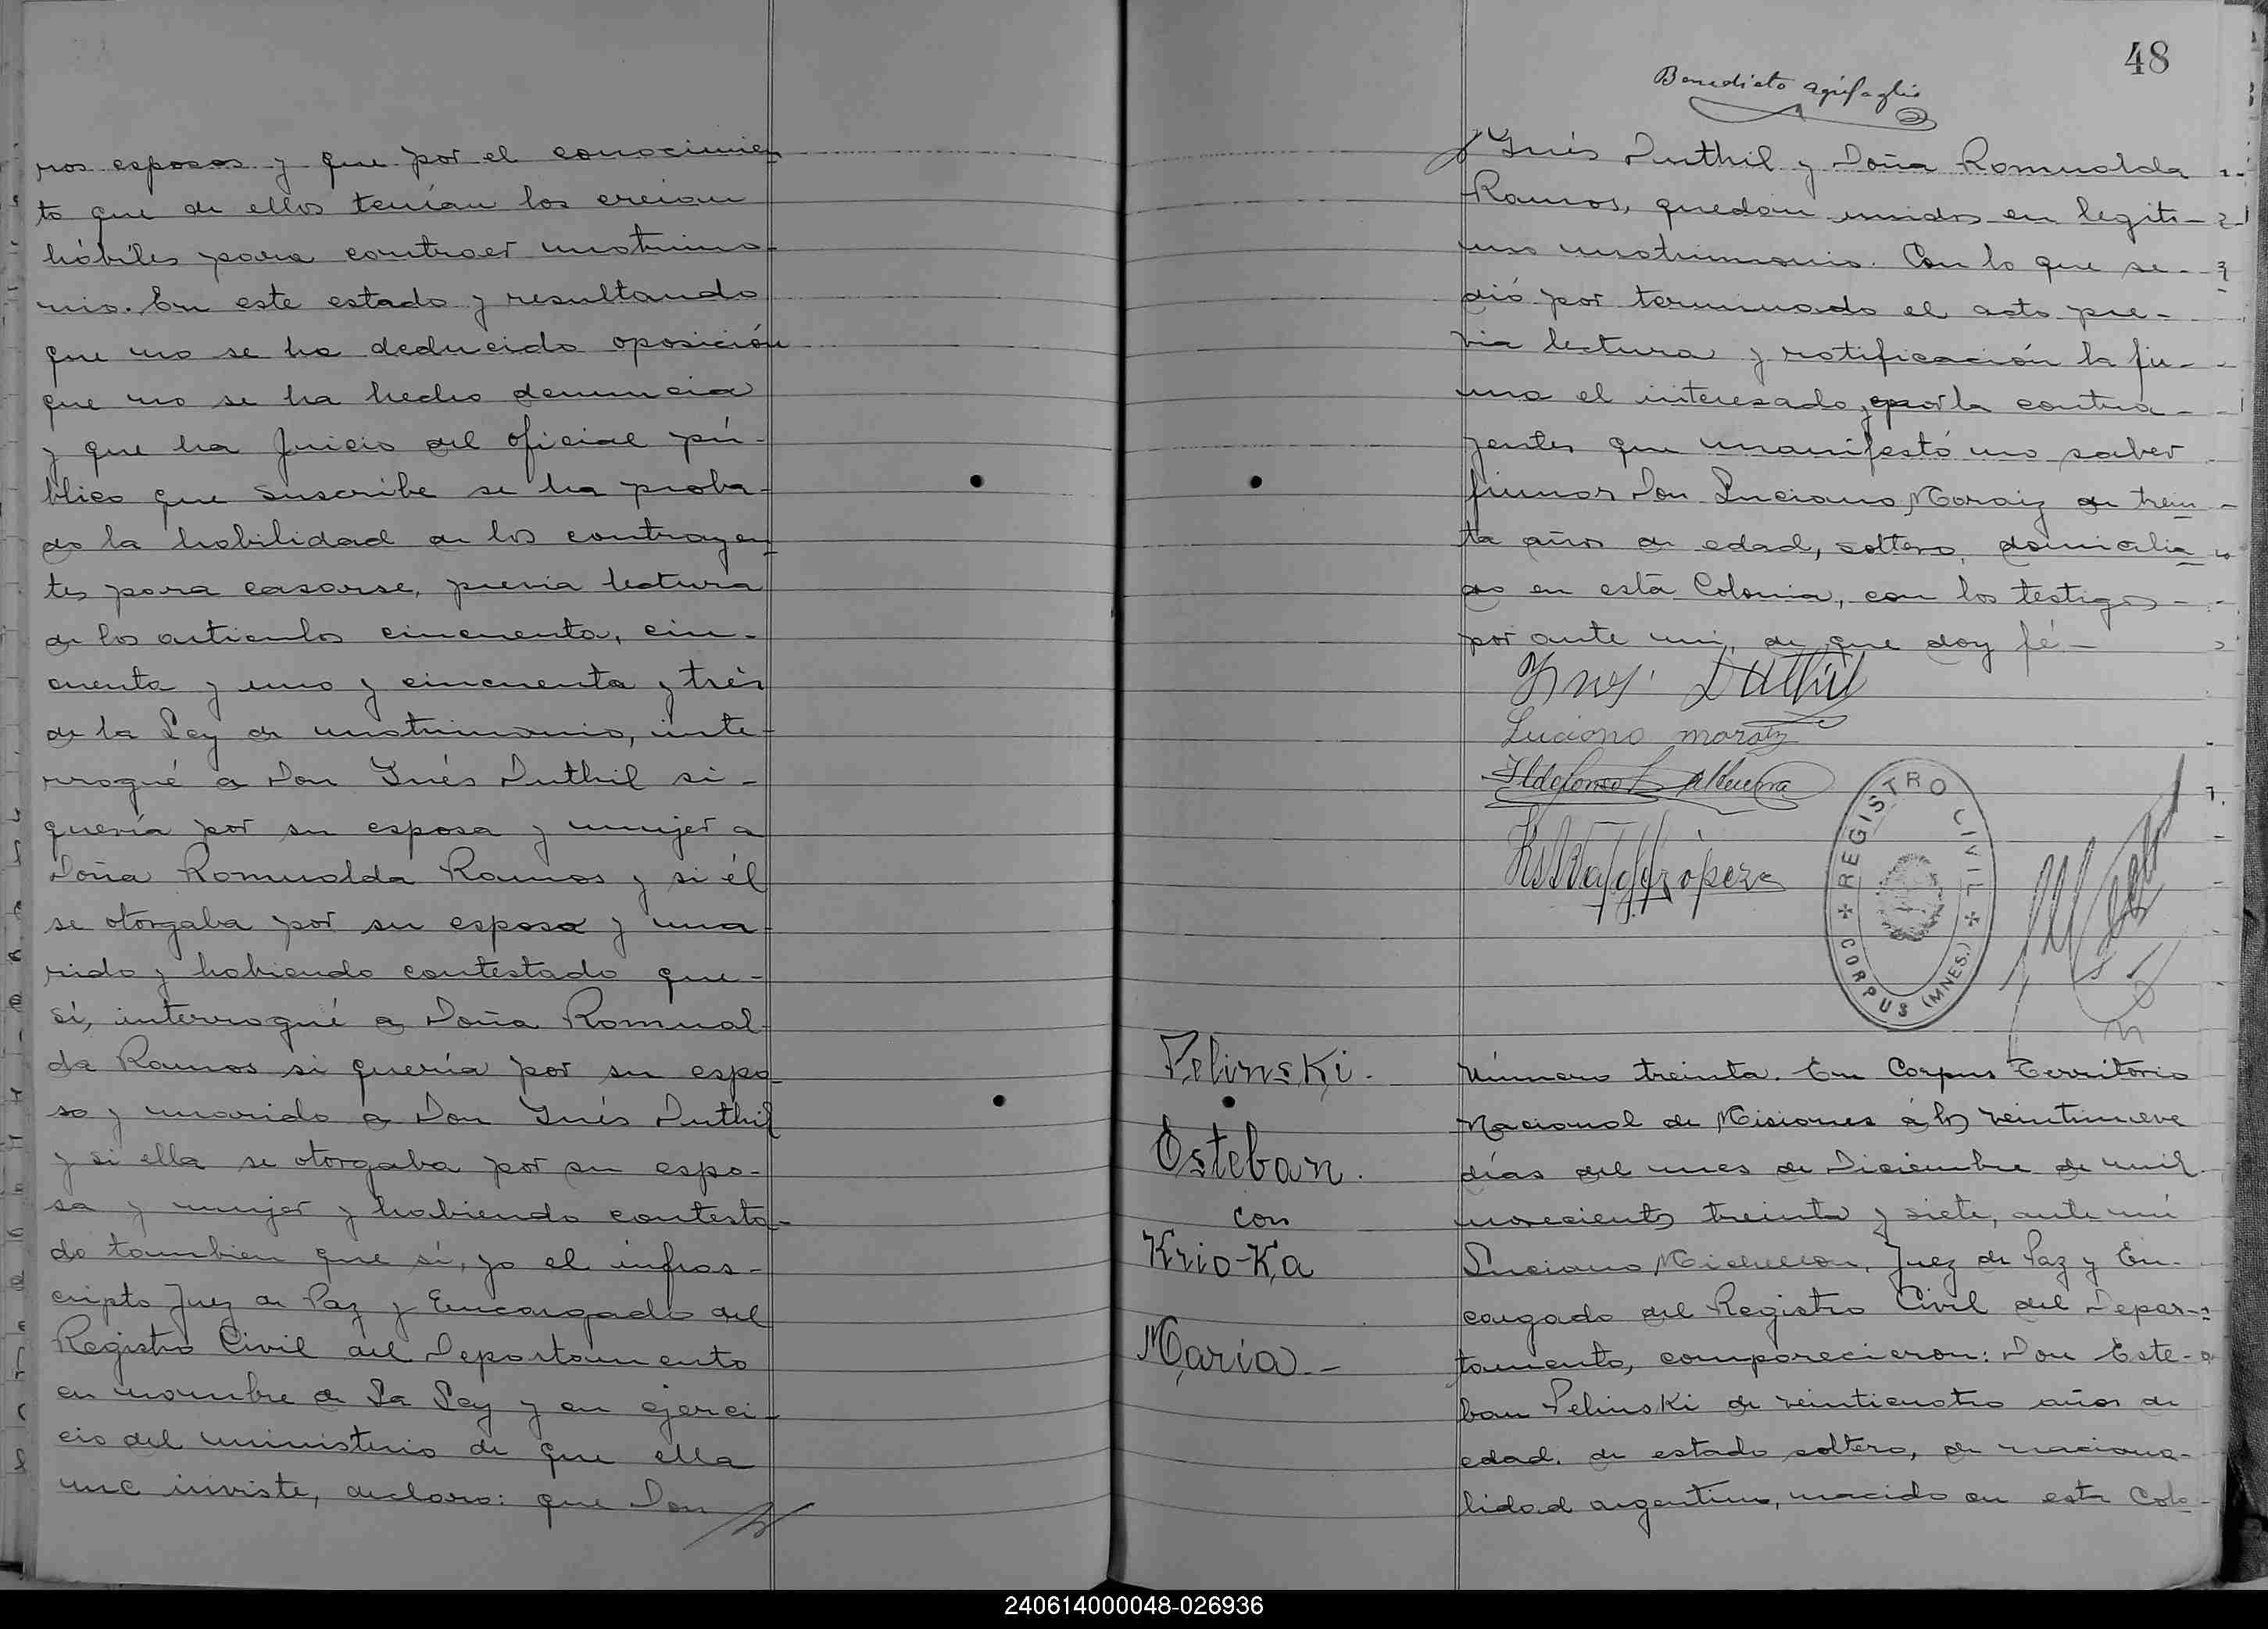 ros esposos y que por el conocimien
to que de ellos tenían los creian
hábiles para contraer matrimo-
nio. En este estado y resultando
que no se ha deducido oposición
que no se ha hecho denuncia
y que ha Juicio del oficial pú-
blico que suscribe se ha proba-
do la habilidad de los contrayen
tes para casarse, previa lectura
de los articulos cincuenta, cin-
cuenta y uno y cincuenta y tres
de la Ley de matrimonio, inte-
rrogué a Don Inés Duthil si-
quería por su esposa y mujer a
Doña Romualda Ramos y si él
se otorgaba por su esposo y ma
rido y habiendo contestado que-
sí, interrogué a Doña Romual-
da Ramos si quería por su espo-
so y marido a Don Inés Duthil
y si ella se otorgaba por su espo-
sa y mujer y habiendo contesta-
do tambien que sí, yo el infras-
cripto Juez de Paz y Encargado del
Registro Civil del Departamento
en nombre de La Ley y en ejerci-
cio del ministerio de que ella
me inviste, declaro: que Don
48
Benedicto
Inés Duthil y Doña Romualda
Ramos, quedan unidos en legiti-
mo matrimonio. Con lo que se-
dió por terminado el acto pre-
via lectura y ratificación la fir-
ma el interesado, y por la contra-
yente que manifestó no saber
firmar Don Luciano Moraiz de trein
ta años de edad, soltero, domicilia
do en esta Colonia, con los testigos-
por ante mi, de que doy fé-
Ines Duthil
Luciano moraiz
Ildefonso
REGISTRO CIVIL
CORPUS (MNES.)
Pelinski.
Esteban.
con
Krio-Ka
María-
Número treinta. En Corpus Territorio
Nacional de Misiones á los veintinueve
días del mes de Diciembre de mil
novecientos treinta y siete, ante mí
Luciano Juez de Paz y En-
cargado del Registro Civil del Depar-
tamento, comparecieron: Don Este-
ban Pelinski de veinticuatro años de
edad, de estado soltero, de naciona-
lidad argentino, nacido en esta Colo-
240614000048-026936